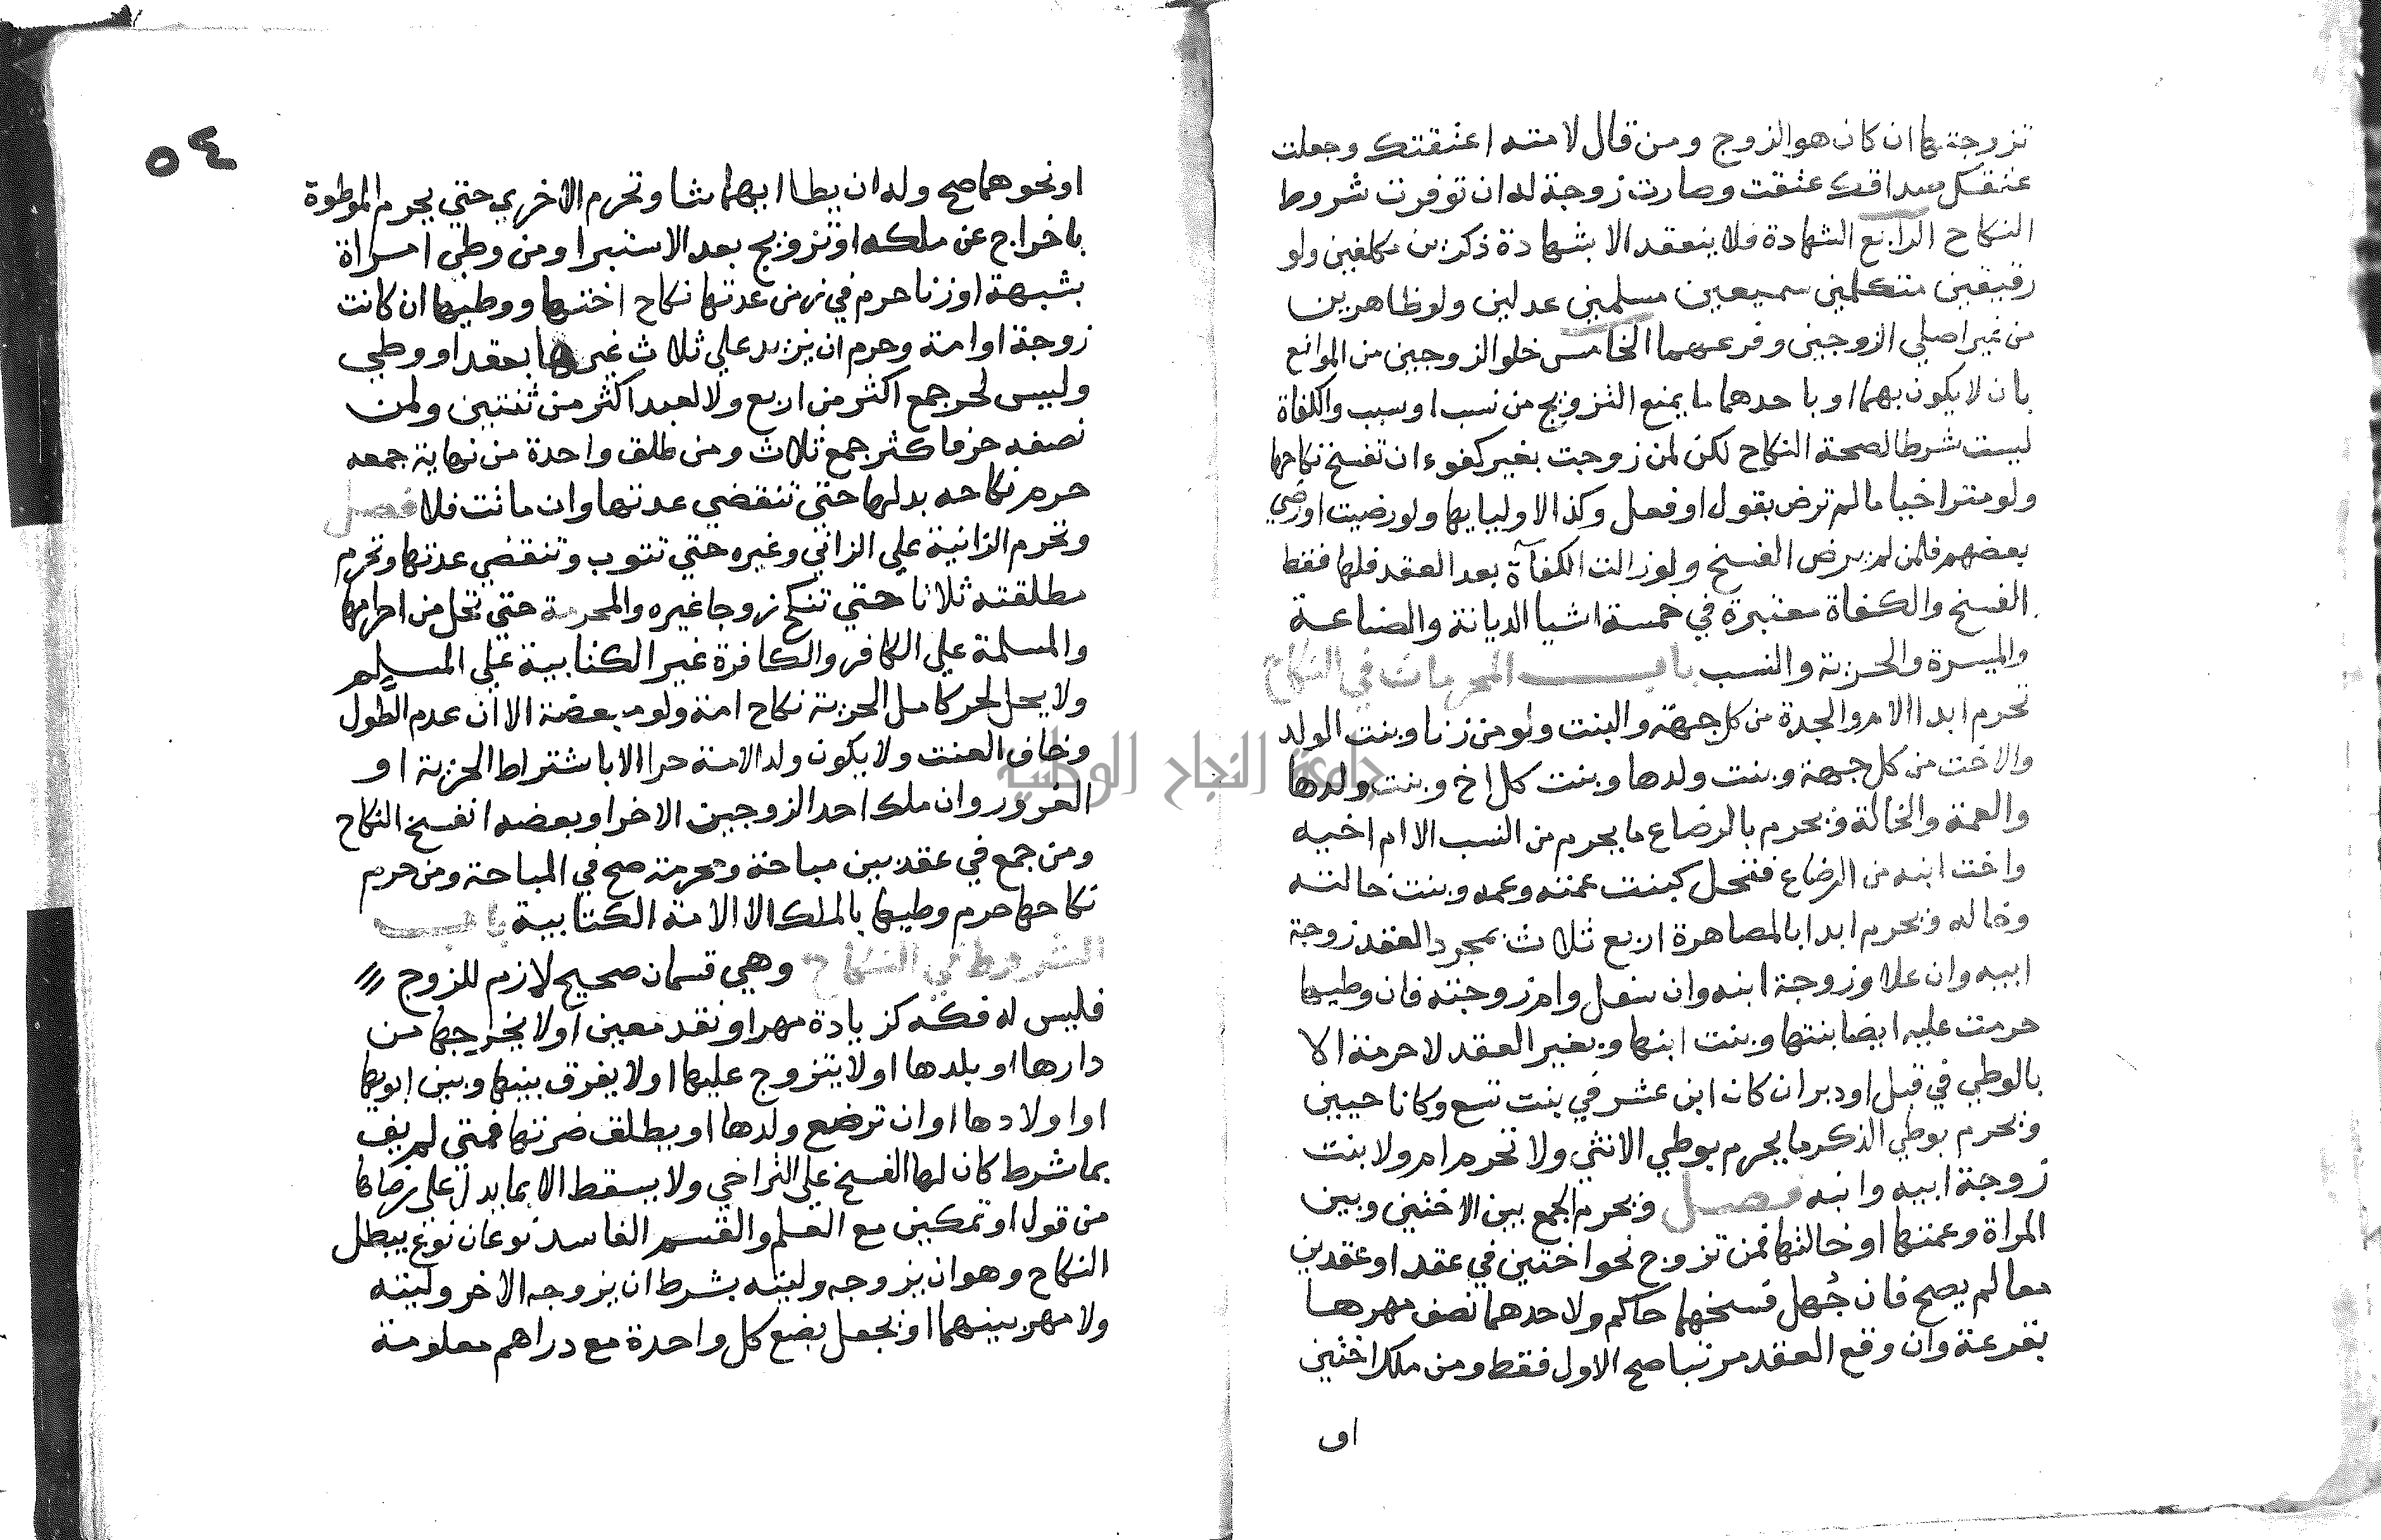 تزوجتها ان كان هو الزوج ومن قال لامته اعتقتك وجعلت
عتقك صداقك عتقت وصارت زوجة له ان توفرت شروط
النكاح الرابع الشهادة فلا ينعقد الا بشهادة ذكرين مكلفين ولو
رقيقين متكلمين سميعين مسلمين عدلين ولو ظاهرين
من غير اصلي الزوجين وفرعهما الخامس خلو الزوجين من الموانع
بان لا يكون بهما او باحدهما ما يمنع التزويج من نسب او سبب والكفاة
ليست شرطا لصحة النكاح لكن لمن زوجت بغير كفوء ان تفسخ نكاحها
ولو متراخيا ما لم ترض بقول او فعل وكذا الاوليايها ولو رضيت او رضي
بعضهم فلمن لم يرض الفسخ ولو زالت الكفآة بعد العقد فلها فقط
الفسخ والكفاة معتبرة في خمسة اشيا الديانة والصناعة
والميسرة والحرية والنسب باب المحرمات في النكاح
تحرم ابدا الام والجدة من كل جهة والبنت ولو من زنا وبنت الولد
والاخت من كل جهة وبنت ولدها وبنت كل اخ وبنت ولدها
والعمة والخالة ويحرم بالرضاع ما يحرم من النسب الا ام اخيه
واخت ابنه من الرضاع فتحل كبنت عمته وعمه وبنت خالته
وخاله ويحرم ابدا بالمصاهرة اربع ثلاث بمجرد العقد زوجة
ابيه وان علا وزوجة ابنه وان سفل وام زوجته فان وطيها
حرمت عليه ايضا بنتها وبنت ابنها وبغير العقد لا حرمة الا
بالوطي في قبل او دبر ان كان ابن عشر في بنت تسع وكانا حيين
ويحرم بوطي الذكر ما يحرم بوطي الانثي ولا تحرم ام ولا بنت
زوجة ابيه وابنه فصل ويحرم الجمع بين الاختين وبين
المراة وعمتها او خالتها فمن تزوج نحو اختين في عقد او عقدين
معا لم يصح فان جُهل فسخهما حاكم ولاحدهما نصف مهرها
بقرعة وان وقع العقد مرتبا صح الاول فقط ومن ملك اختين
او
٥٤
او نحوهما صح وله ان يطا ايهما شا وتحرم الاخري حتي يحرم الموطوة
باخراج عن ملكه او تزويج بعد الاستبرا ومن وطي امراة
بشبهة او زنا حرم في زمن عدتها نكاح اختها ووطيها ان كانت
زوجة او امة وحرم ان يزيد علي ثلاث غيرها بعقد او وطي
وليس لحر جمع اكثر من اربع ولا لعبد اكثر من ثنتين ولمن
نصفه حر فاكثر جمع ثلاث ومن طلق واحدة من نهاية جمعه
حرم نكاحه بدلها حتي تنقضي عدتها وان ماتت فلا فصل
وتحرم الزانية علي الزاني وغيره حتي تتوب وتنقضي عدتها وتحرم
مطلقته ثلاثا حتي تنكح زوجا غيره والمحرمة حتي تحل من احرامها
والمسلمة علي الكافر والكافرة غير الكتابية علي المسلم
ولا يحل لحر كامل الحرية نكاح امة ولو مبعضة الا ان عدم الطَّول
وخاف العنت ولا يكون ولد الامة حرا الا باشتراط الحرية او
الغرور وان ملك احد الزوجين الاخر او بعضه انفسخ النكاح
ومن جمع في عقد بين مباحة ومحرمة صح في المباحة ومن حرم
نكاحها حرم وطيها بالملك الا الامة الكتابية باب
الشروط في النكاح وهي قسمان صحيح لازم للزوج
فليس له فكه كزيادة مهر او نقد معين او لا يخرجها من
دارها او بلدها او لا يتزوج عليها او لا يفرق بينها وبين ابويها
او اولادها او ان ترضع ولدها او يطلق ضرتها فمتي لم يف
بما شرط كان لها الفسخ علي التراخي ولا يسقط الا بما يدل علي رضاها
من قول او تمكين مع العلم والقسم الفاسد نوعان نوع يبطل
النكاح وهو ان يزوجه وليته بشرط ان يزوجه الاخر وليته
ولا مهر بينهما او يجعل بضع كل واحدة مع دراهم معلومة
جامعة النجاح الوطنية